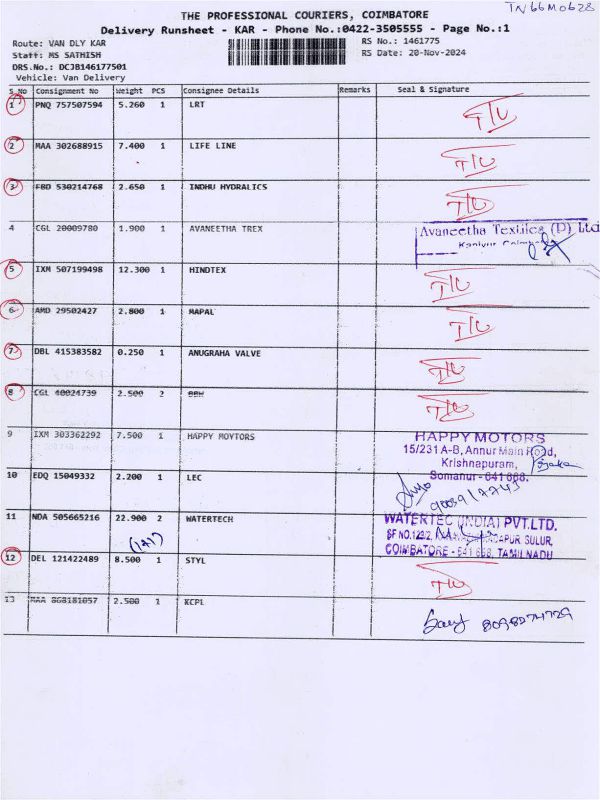 TN66M0628
THE PROFESSIONAL COURIERS, COIMBATORE
Delivery Runsheet - KAR - Phone No.:0422-3505555 - Page No.:1
Route: VAN DLY KAR RS No.: 1461775
Staff: MS SATHISH RS Date: 20-Nov-2024
DRS.No.: DCJB146177501
Vehicle: Van Delivery
S No Consignment No Weight PCS Consignee Details Remarks Seal & Signature
1 PNQ 757507594 5.260 1 LRT T/U
2 MAA 302688915 7.400 1 LIFE LINE T/U
3 FBD 530214768 2.650 1 INDHU HYDRALICS T/U
4 CGL 20009780 1.900 1 AVANEETHA TREX Avaneetha Textiles (P) Ltd
Kaniyur Coimbatore
5 IXM 507199498 12.300 1 HINDTEX T/U
6 AMD 29502427 2.800 1 MAPAL T/U
7 DBL 415383582 0.250 1 ANUGRAHA VALVE T/U
8 CGL 40024739 2.500 2 BBH T/U
9 IXM 303362292 7.500 1 HAPPY MOYTORS HAPPY MOTORS
15/231 A-B, Annur Main Road,
Krishnapuram,
Somanur - 641 668.
10 EDQ 15049332 2.200 1 LEC
11 NDA 505665216 22.900 2 WATERTECH WATERTEC (INDIA) PVT.LTD.
SF NO.123/2, SULUR,
COIMBATORE - 641 668, TAMILNADU
(1/1)
12 DEL 121422489 8.500 1 STYL T/U
13 MAA 868181057 2.500 1 KCPL